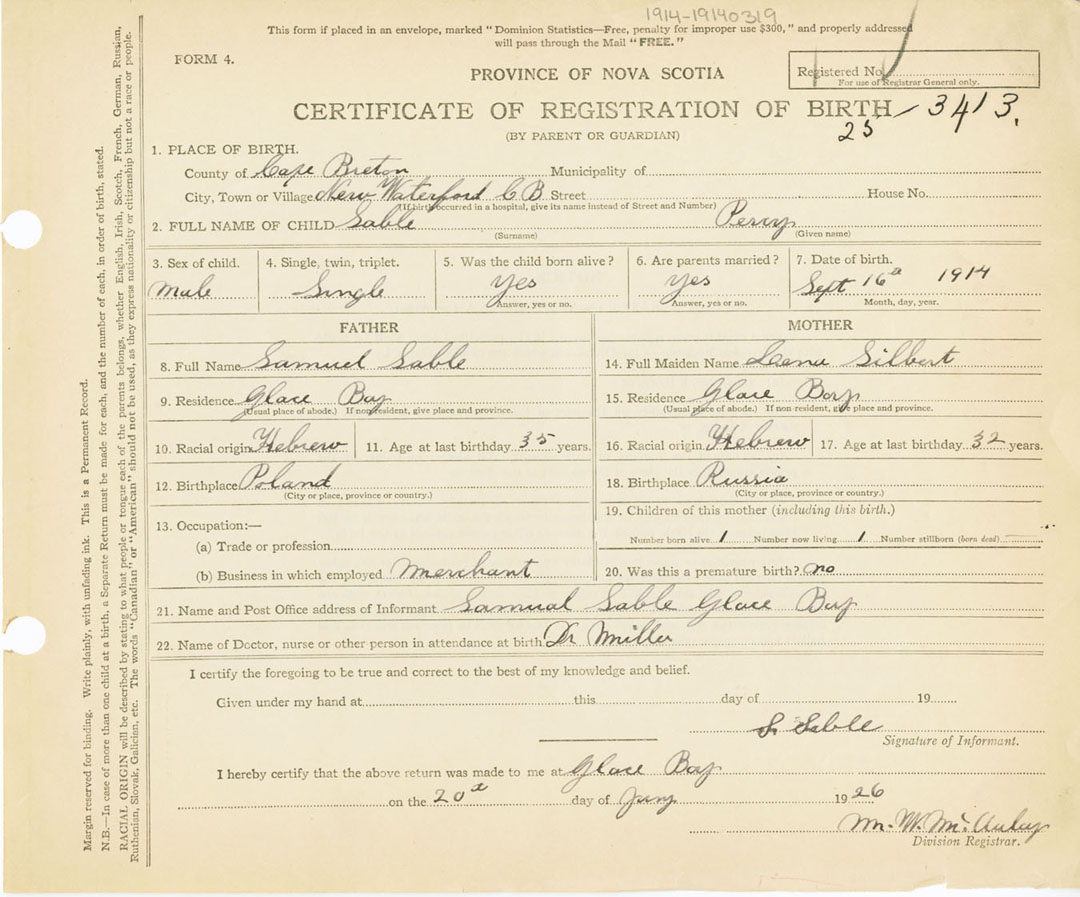 1914-19140319
This form if placed in an envelope, marked "Dominion Statistics—Free, penalty for improper use $300," and properly addressed
will pass through the Mail "FREE."
FORM 4.
PROVINCE OF NOVA SCOTIA
Registered No.
For use of Registrar General only.
CERTIFICATE OF REGISTRATION OF BIRTH
25 - 3413.
(BY PARENT OR GUARDIAN)
1. PLACE OF BIRTH.
County of Cape Breton Municipality of
City, Town or Village New Waterford C B Street House No.
(If birth occurred in a hospital, give its name instead of Street and Number)
2. FULL NAME OF CHILD Sable Percy
(Surname) (Given name)
3. Sex of child. 4. Single, twin, triplet. 5. Was the child born alive? 6. Are parents married? 7. Date of birth.
Male Single Yes Yes Sept 16th 1914
Answer, yes or no. Answer, yes or no. Month, day, year.
FATHER MOTHER
8. Full Name Samuel Sable 14. Full Maiden Name Lena Gilbert
9. Residence Glace Bay 15. Residence Glace Bay
(Usual place of abode.) If non-resident, give place and province. (Usual place of abode.) If non-resident, give place and province.
10. Racial origin Hebrew 11. Age at last birthday 35 years. 16. Racial origin Hebrew 17. Age at last birthday 32 years.
12. Birthplace Poland 18. Birthplace Russia
(City or place, province or country.) (City or place, province or country.)
13. Occupation:— 19. Children of this mother (including this birth.)
(a) Trade or profession Number born alive 1 Number now living 1 Number stillborn (born dead)
(b) Business in which employed Merchant 20. Was this a premature birth? no
21. Name and Post Office address of Informant Samual Sable Glace Bay
22. Name of Doctor, nurse or other person in attendance at birth Dr Miller
I certify the foregoing to be true and correct to the best of my knowledge and belief.
Given under my hand at this day of 19
S. Sable
Signature of Informant.
I hereby certify that the above return was made to me at Glace Bay
on the 20th day of 1926
Wm. W. McAulay
Division Registrar.
Margin reserved for binding. Write plainly, with unfading ink. This is a Permanent Record.
N.B.—In case of more than one child at a birth, a Separate Return must be made for each, and the number of each, in order of birth, stated.
RACIAL ORIGIN will be described by stating to what people or tongue each of the parents belongs, whether English, Irish, Scotch, French, German, Russian,
Ruthenian, Slovak, Galician, etc. The words "Canadian" or "American" should not be used, as they express nationality or citizenship but not a race or people.